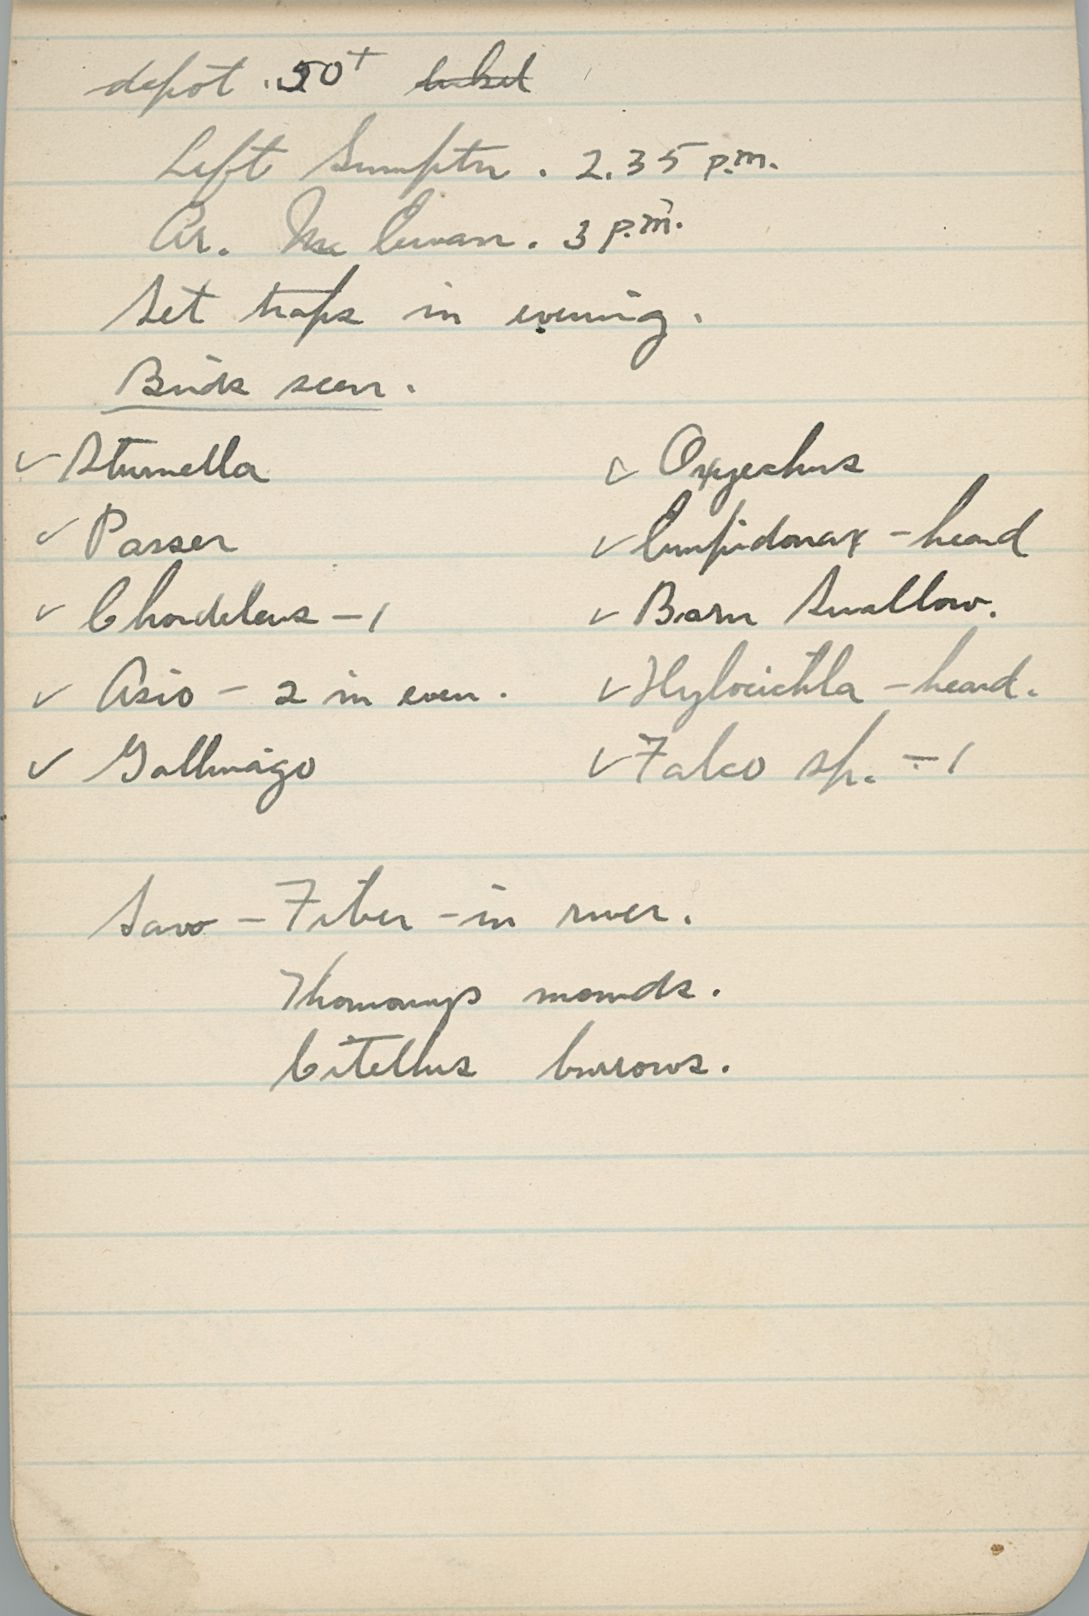 depot. 50+
Left Sumpter. 2.35 p.m.
Ar. McEwan. 3 p.m.
Set traps in evening.
Birds seen.
✓ Sturnella
✓ Passer
✓ Chordeles - 1
✓ Asio - 2 in even.
✓ Gallinago
✓ Oxyechus
✓ Empidonax - heard
✓ Barn Swallow.
✓ Hylocichla - heard.
✓ Falco sp. - 1
Saw - Fiber - in river.
Thomomys mounds.
Citellus burrows.